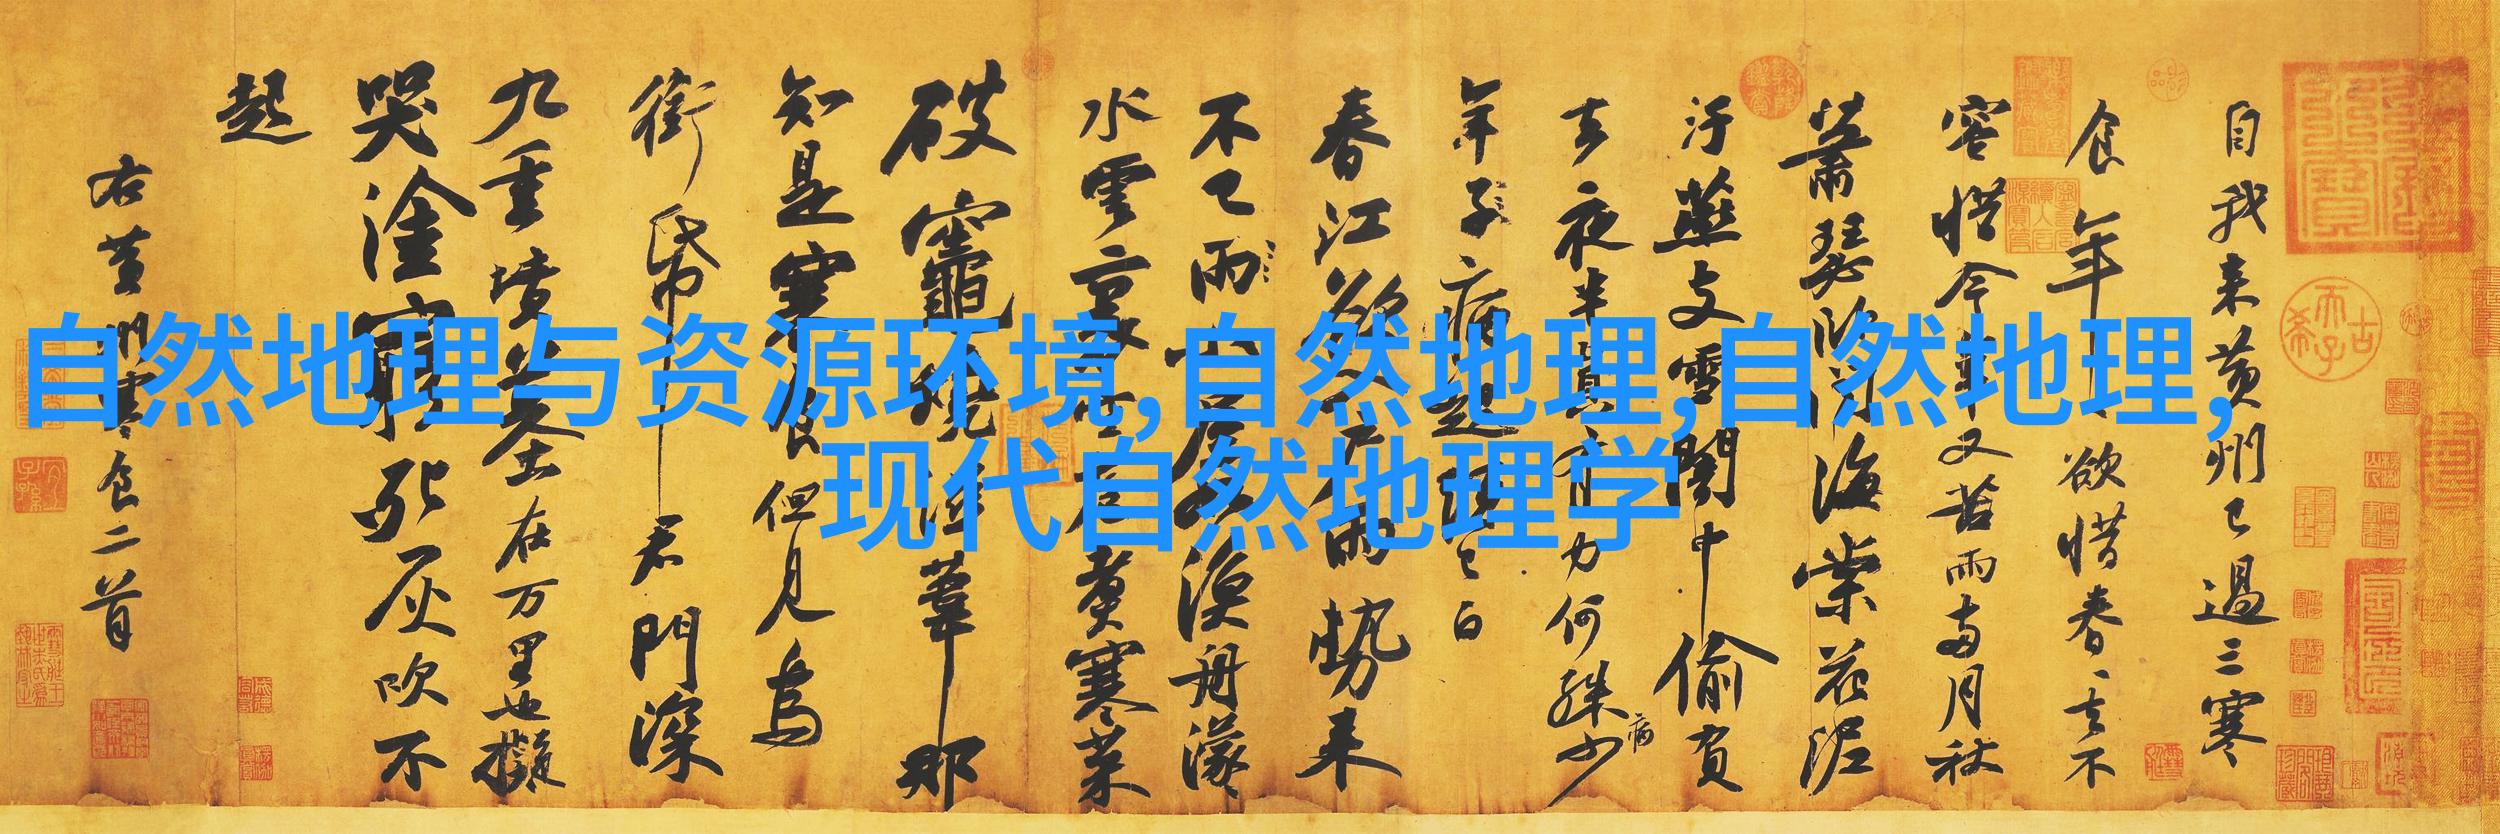 自然地理与资源环境,自然地理,自然地理,
现代自然地理学
自我来黄州已過三寒
食年年欲惜春春去不
容惜今年又苦雨兩月秋
蕭瑟卧聞海棠花泥
汙燕支雪闇中偷負
去夜半真有力何殊少
年子病起頭已白
春江欲入户雨勢来
不已雨小屋如漁舟濛
水雲裏空庖煑寒菜
破竈燒濕葦那
知是寒食但見烏
銜帋君門深
九重墳墓在万里也擬
哭塗窮死灰吹不
起
右黄州寒食二首